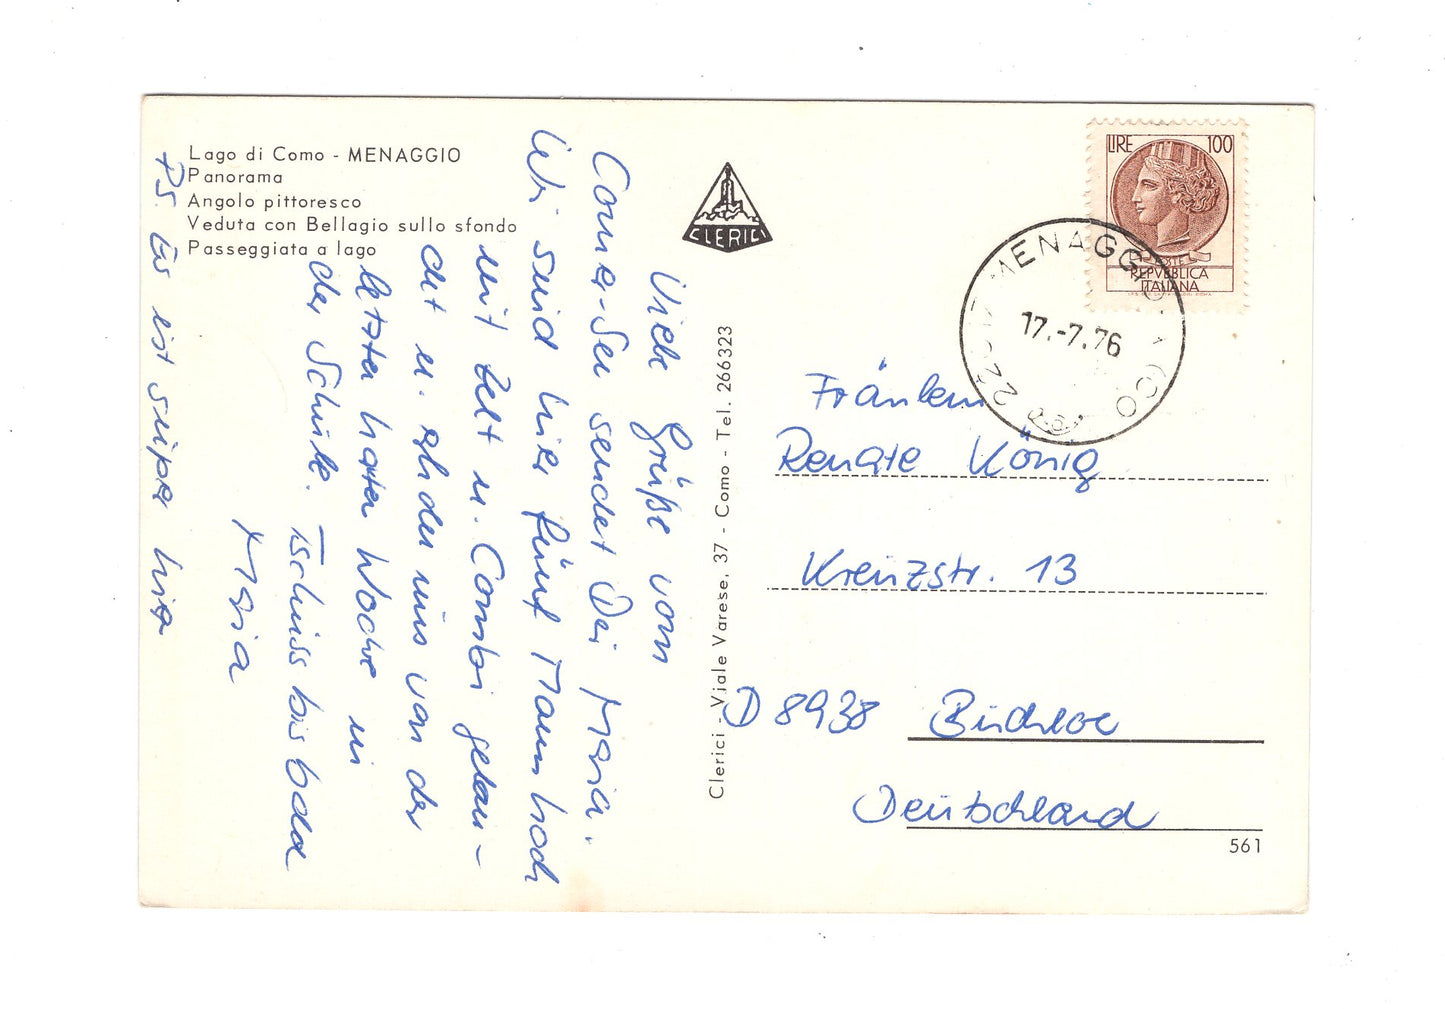 Lago di Como - MENAGGIO
Panorama
Angolo pittoresco
Veduta con Bellagio sullo sfondo
Passeggiata a lago
Viele Grüße vom
Comer-See sendet Dir Maria.
Wir sind hier fünf Mann hoch
mit Zelt u. Combi gelan-
det u. erholen uns von der
letzten harten Woche in
der Schule. Tschüss bis bald
Maria
PS. Es ist super hier
CLERICI
Clerici - Viale Varese, 37 - Como - Tel. 266323
LIRE 100
POSTE
REPVBBLICA
ITALIANA
MENAGGIO (CO)
17.-7.76
Fräulein
Renate König
Kreuzstr. 13
D 8938 Buchloe
Deutschland
561